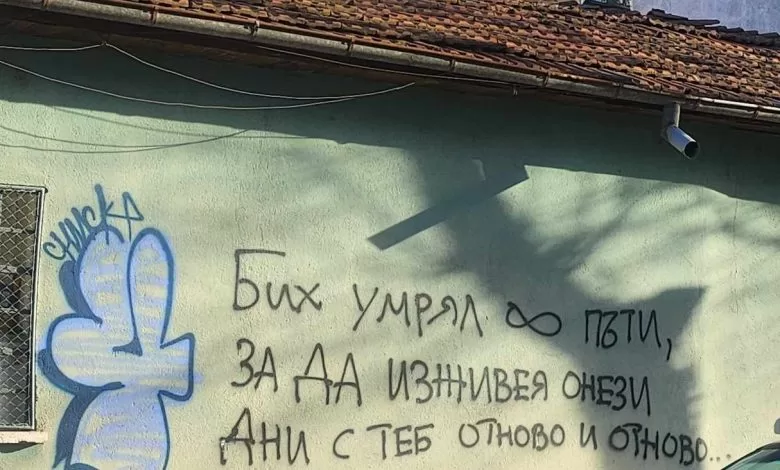 Бих умрял ∞ пъти,
за да изживея онези
дни с теб отново и отново...